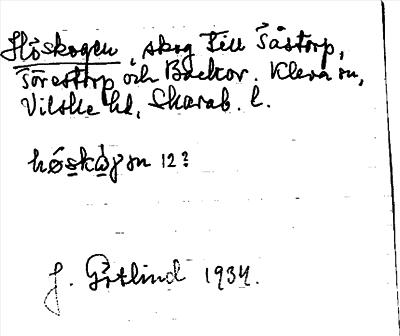 Höskogen, skog till Såstorp,
Torestorp och Backor. Kleva sn,
Vilske hd, Skarab. l.
höskògǝn 12?
J. Götlind 1934.